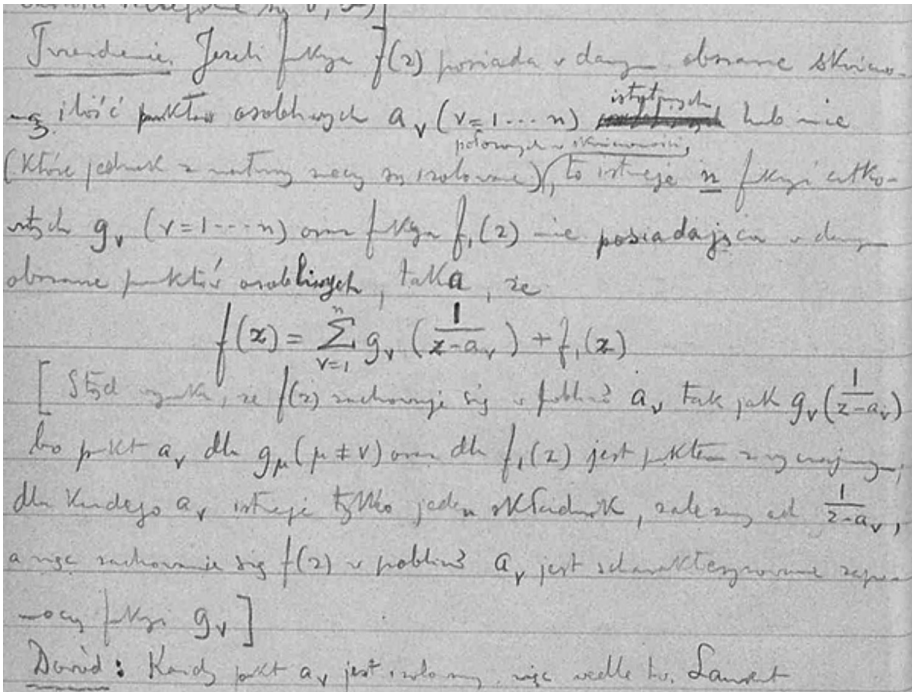 Twierdzenie. Jeżeli fkcya f(z) posiada w danym obszarze skończo-
ną ilość punktów osobliwych a_ν (ν=1···n) istotnych lub nie
położonych w skończoności,
(które jednak z natury rzeczy są izolowane), to istnieje n fkcyi całko-
witych g_ν (ν=1···n) oraz fkcya f₁(z) nie posiadająca w danym
obszarze punktów osobliwych, taka, że
f(z) = Σ_{ν=1}^{n} g_ν (1/(z-a_ν)) + f₁(z)
[Stąd wynika, że f(z) zachowuje się w pobliżu a_ν tak jak g_ν(1/(z-a_ν))
bo punkt a_ν dla g_μ (μ≠ν) oraz dla f₁(z) jest punktem zwyczajnym,
dla każdego a_ν istnieje tylko jeden składnik, zależny od 1/(z-a_ν),
a więc zachowanie się f(z) w pobliżu a_ν jest scharakteryzowane zapo-
mocą fkcyi g_ν]
Dowód: Każdy punkt a_ν jest izolowany, więc wedle tw. Laurent